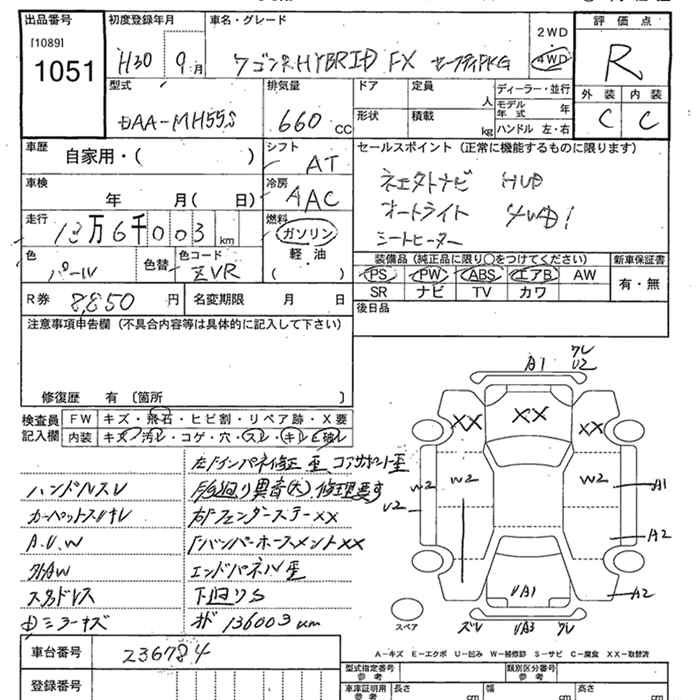 出品番号
[1089]
1051
初度登録年月
H30 9月
車名・グレード
ワゴンR HYBRID FX セーフティPKG
2WD
4WD
評価点
R
外装 内装
C C
型式
DAA-MH55S
排気量
660 cc
ドア
形状
定員
人
積載
kg
ディーラー・並行
モデル年式 年
ハンドル 左・右
車歴
自家用・( )
シフト
AT
車検
年 月( 日)
冷房
AAC
走行
13万6千003 km
燃料
ガソリン
軽・油
( )
色
パール
色替
色コード
ZVR
R券 8,850 円
名変期限 月 日
セールスポイント (正常に機能するものに限ります)
オートライト
シートヒーター
装備品 (純正品に限り○をつけてください)
PS PW ABS エアB AW
SR ナビ TV カワ
新車保証書
有・無
後日品
注意事項申告欄 (不具合内容等は具体的に記入して下さい)
修復歴 有 〔箇所 〕
検査員記入欄
FW キズ・飛石・ヒビ割・リペア跡・X要
内装 キズ・汚レ・コゲ・穴・スレ・キレ・破レ
ハンドルスレ
カーペットスレキレ
A.U.W
外AW
スタドレス
F/G廻り異音(大)修理歴有
右FフェンダーステーXX
FバンパーホースメントXX
エンドパネル歪
下廻りS
136003km
A1
U2
XX
XX
XX
W2
W2
W2
U2
A1
A2
A2
UA1
UA3
スペア
A-キズ E-エクボ U-凹み W-補修跡 S-サビ C-腐食 XX-取替済
車台番号 236784
登録番号
型式指定番号
参考
類別区分番号
参考
車庫証明用
参考
長さ cm
幅 cm
高さ cm